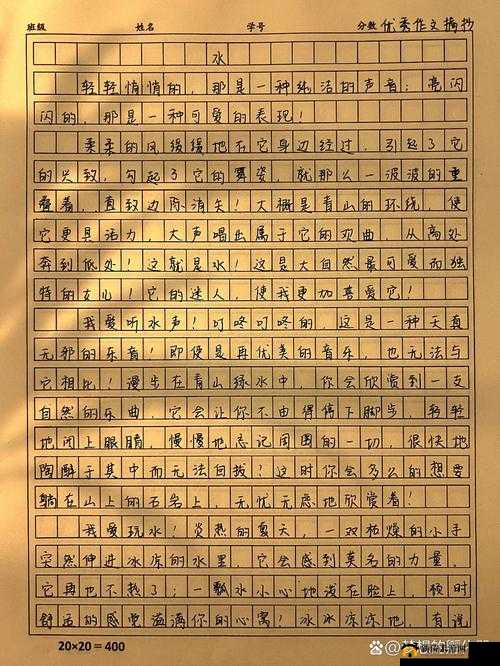 班级 姓名 学号 分数 优秀作文摘抄
水
轻轻悄悄的，那是一种纯洁的声音；亮闪
闪的，那是一种可爱的表现！
柔柔的风缓缓地在它身边经过，引起了它
的兴致，勾起了它的舞姿，就那么一波波的重
叠着，直致边际消失！大概是青山的环绕，使
它更具活力，大声唱出属于它的欢曲，从高处
奔到低处！这就是水！这是大自然最可爱而独
特的女儿！它的迷人，使我更加喜爱它！
我爱听水声！叮咚叮咚的，这是一种天真
无邪的乐音！即使是再优美的音乐，也无法与
它相比！漫步在青山绿水中，你会欣赏到一支
自然的乐曲，它会让你不由得停下脚步，轻轻
地闭上眼睛，慢慢地忘记周围的一切，很快地
陶醉于其中而无法回拔！这时你会多么的想要
躺在山上的石岩上，无忧无虑地欣赏着！
我爱玩水！炎热的夏天，一双枯燥的小手
突然伸进冰冻的水里，它会感到莫名的力量，
它再也不热了；一瓢水小心地泼在脸上，顿时
舒适的感觉溢满你的心窝！冰冰冻冻地，有说
20×20=400